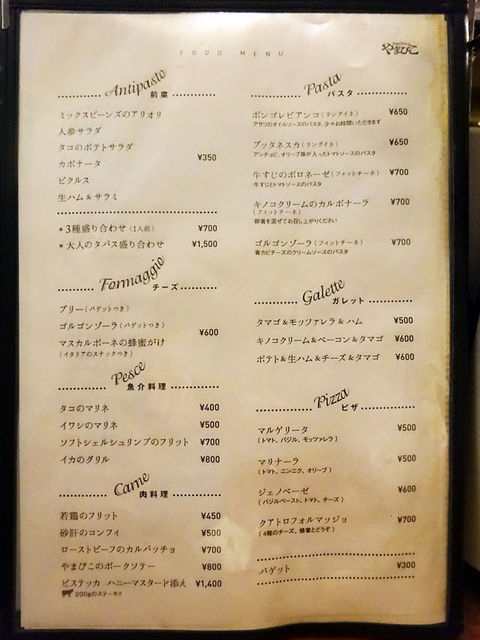 FOOD MENU
やまびこ
Antipasto
前菜
ミックスビーンズのアリオリ
人参サラダ
タコのポテトサラダ
カポナータ ¥350
ピクルス
生ハム&サラミ
*3種盛り合わせ(1人前) ¥700
*大人のタパス盛り合わせ ¥1,500
Formaggio
チーズ
ブリー(バゲットつき)
ゴルゴンゾーラ(バゲットつき)
マスカルポーネの蜂蜜がけ ¥600
(イタリアのスナックつき)
Pesce
魚介料理
タコのマリネ ¥400
イワシのマリネ ¥500
ソフトシェルシュリンプのフリット ¥700
イカのグリル ¥800
Carne
肉料理
若鶏のフリット ¥450
砂肝のコンフィ ¥500
ローストビーフのカルパッチョ ¥700
やまびこのポークソテー ¥800
ビステッカ ハニーマスタード添え ¥1,400
200gのステーキ!!
Pasta
パスタ
ボンゴレビアンコ(リングイネ) ¥650
アサリのオイルソースのパスタ、少々お時間いただきます
プッタネスカ(リングイネ) ¥650
アンチョビ、オリーブ等が入ったトマトソースのパスタ
牛すじのボロネーゼ(フィットチーネ) ¥700
牛すじとトマトソースのパスタ
キノコクリームのカルボナーラ ¥700
(フィットチーネ)
卵黄を混ぜてお召し上がりください
ゴルゴンゾーラ(フィットチーネ) ¥700
青カビチーズのクリームソースのパスタ
Galette
ガレット
タマゴ&モッツァレラ&ハム ¥500
キノコクリーム&ベーコン&タマゴ ¥600
ポテト&生ハム&チーズ&タマゴ ¥600
Pizza
ピザ
マルゲリータ ¥500
(トマト、バジル、モッツァレラ)
マリナーラ ¥500
(トマト、ニンニク、オリーブ)
ジェノベーゼ ¥600
(バジルペースト、トマト、チーズ)
クアトロフォルマッジョ ¥700
(4種のチーズ、蜂蜜とどうぞ)
バゲット ¥300